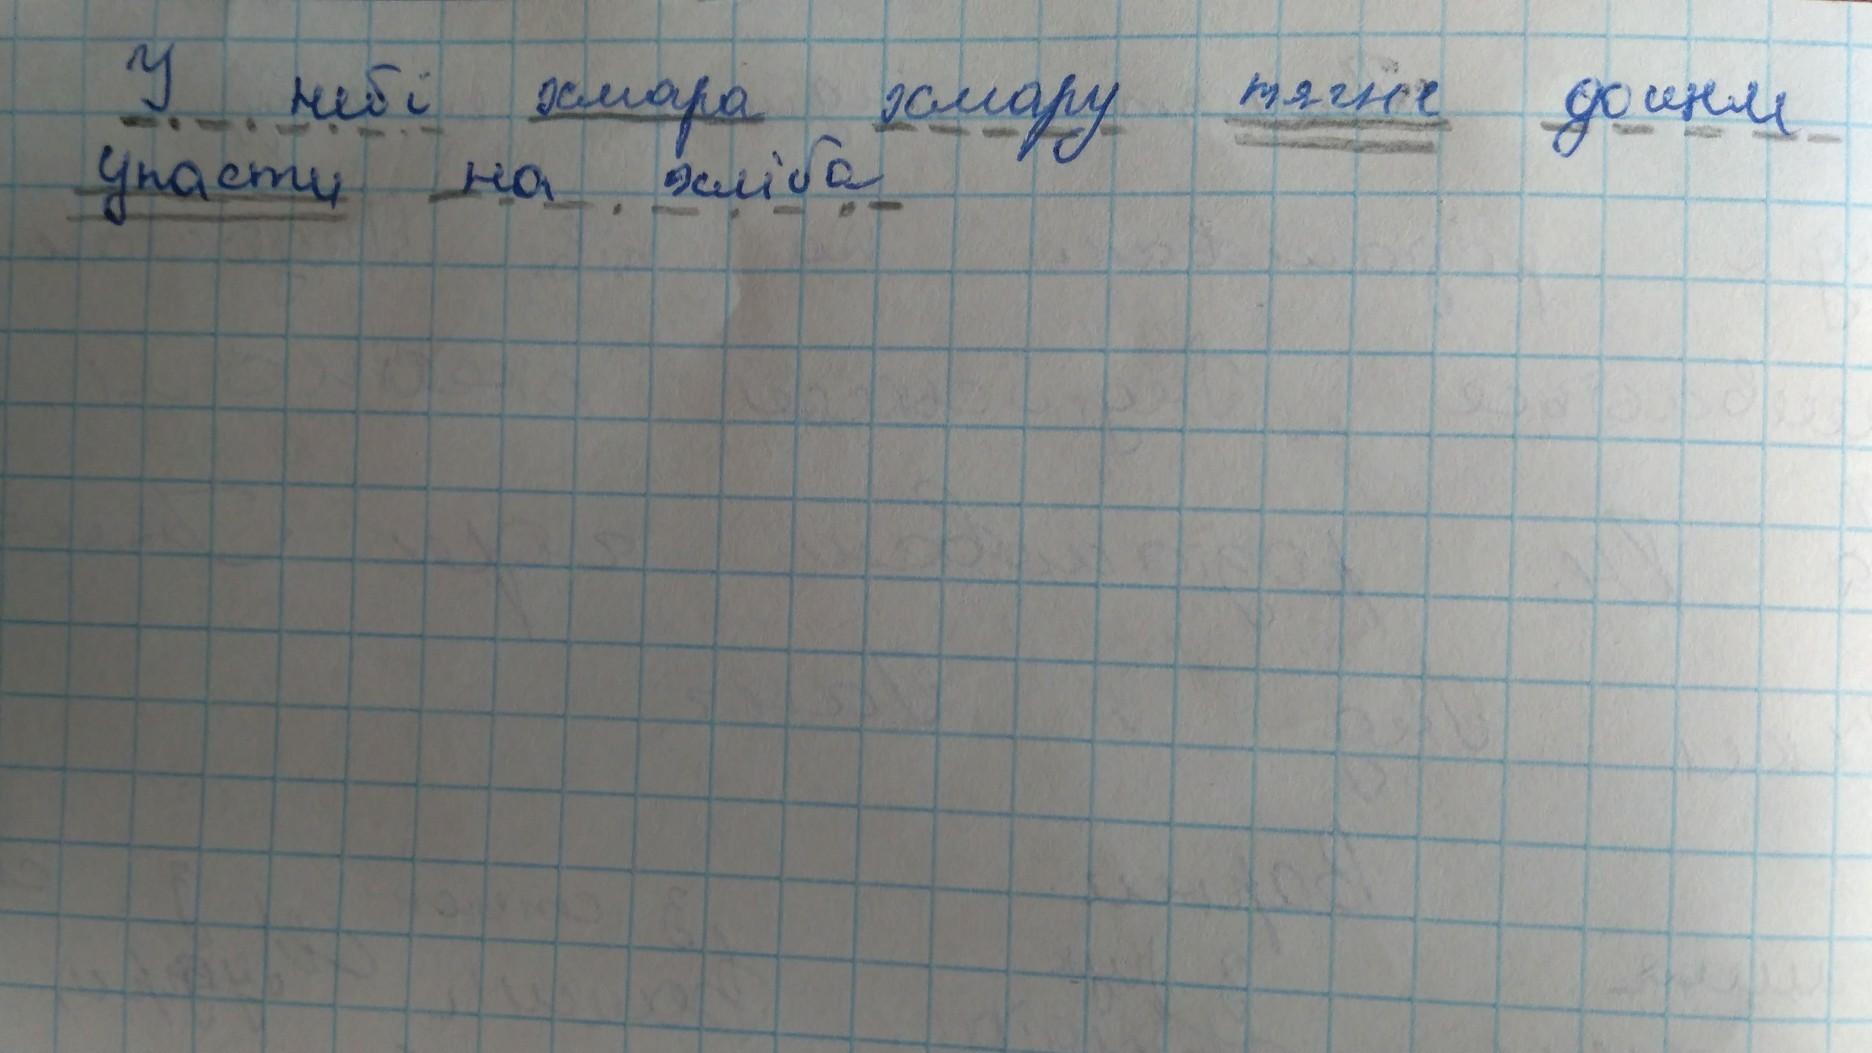 У небі хмара хмару тягне дощем
упасти на хліба